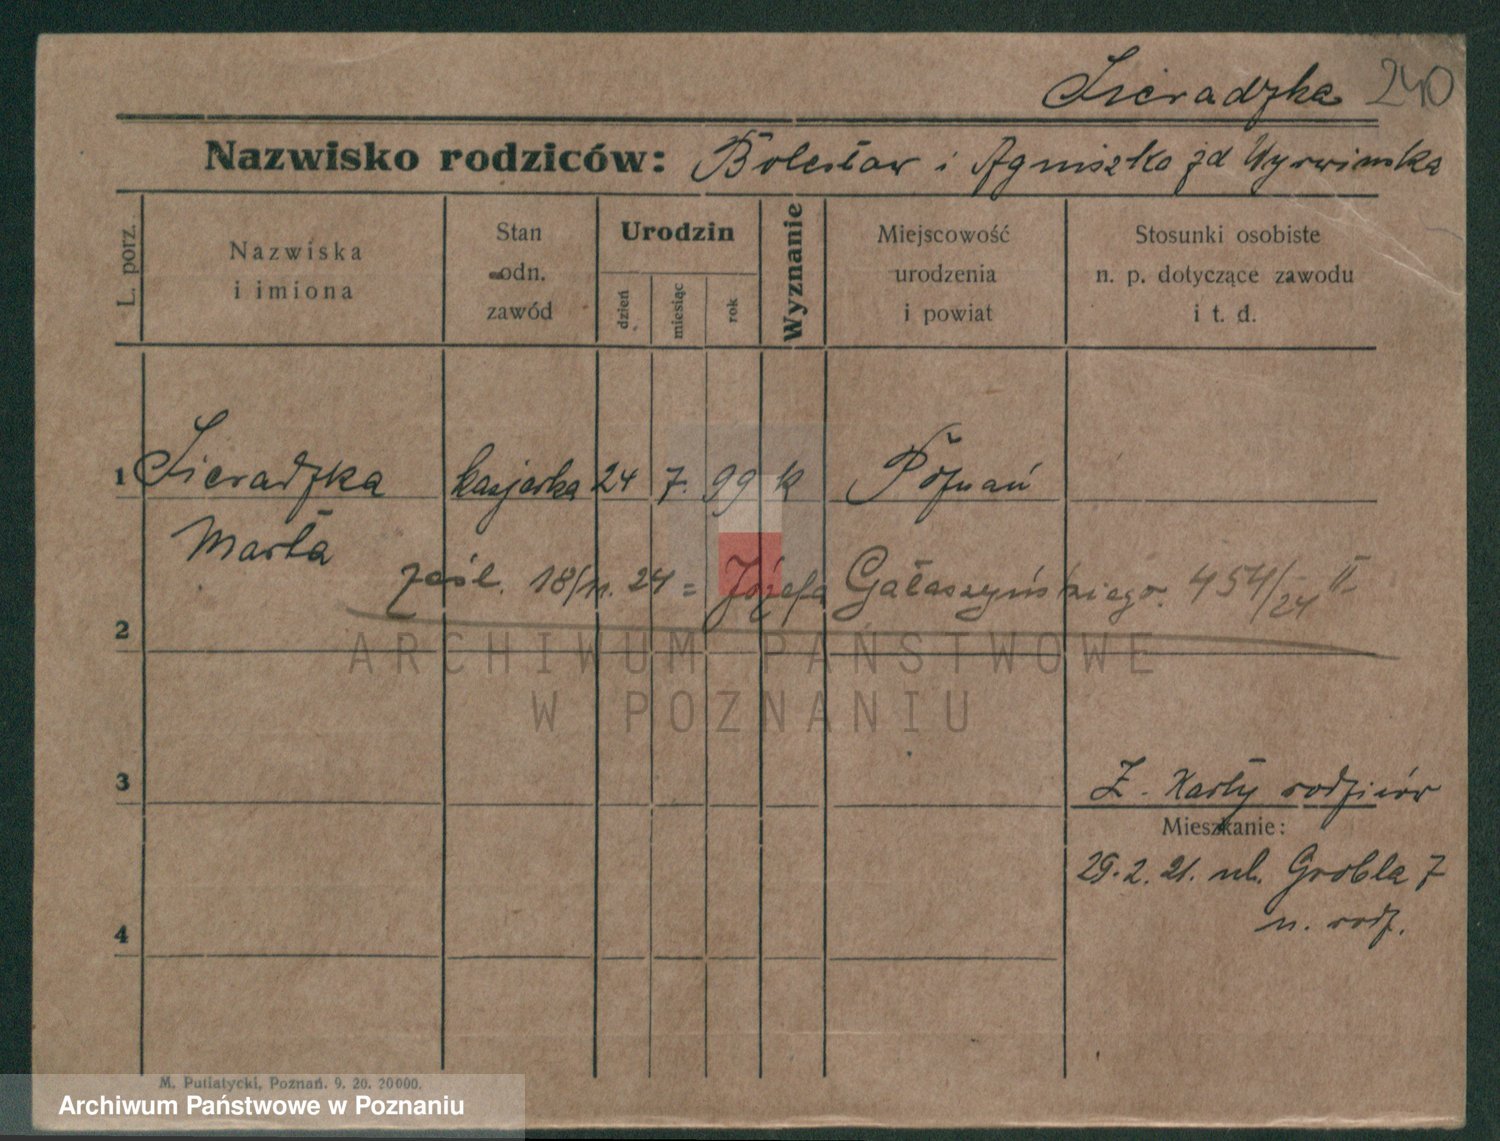 Sieradzka 240
Nazwisko rodziców: Bolesław i Agniszka zd
L. porz.
Nazwiska
i imiona
Stan
odn.
zawód
Urodzin
dzień
miesiąc
rok
Wyznanie
Miejscowość
urodzenia
i powiat
Stosunki osobiste
n. p. dotyczące zawodu
i t. d.
1 Sieradzka kasjerka 24 7. 99 k Poznań
Marta
zaśl. 18/11. 24 = Józefa Gałaszyńskiego. 454/24 II
2
ARCHIWUM PAŃSTWOWE
W POZNANIU
3
Z. Karty rodziców
Mieszkanie:
29.2.21. ul. Grobla 7
n. rodz.
4
M. Putiatycki, Poznań. 9. 20. 20000.
Archiwum Państwowe w Poznaniu